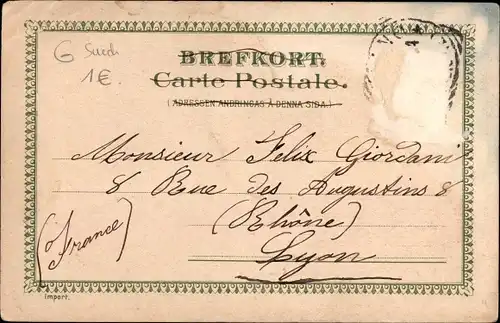 G Suède
1€
BREFKORT.
Carte Postale.
(ADRESSEN ANBRINGAS Å DENNA SIDA.)
Monsieur Felix Giordani
8 Rue des Augustins 8
(Rhône)
Lyon
(France)
Import.